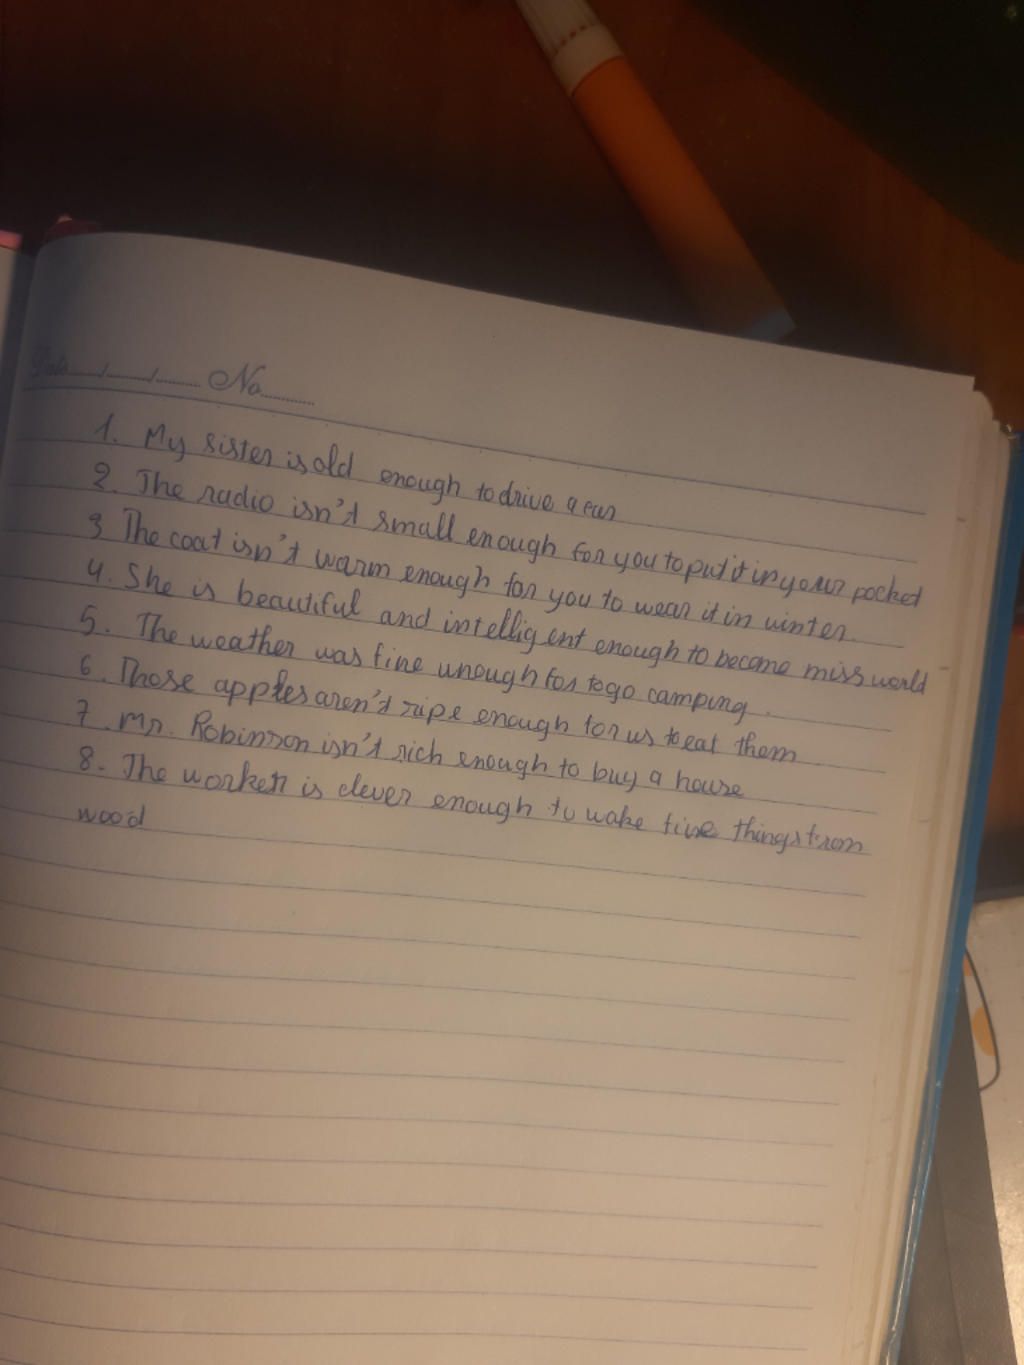 Date ..../..../.... No..........
1. My sister is old enough to drive a car
2. The radio isn't small enough for you to put it in your pocket
3 The coat isn't warm enough for you to wear it in winter.
4. She is beautiful and intelligent enough to become miss world
5. The weather was fine unough for to go camping.
6. Those apples aren't ripe enough for us to eat them
7. Mr. Robinson isn't rich enough to buy a house
8. The worker is clever enough to wake fine things from
wood